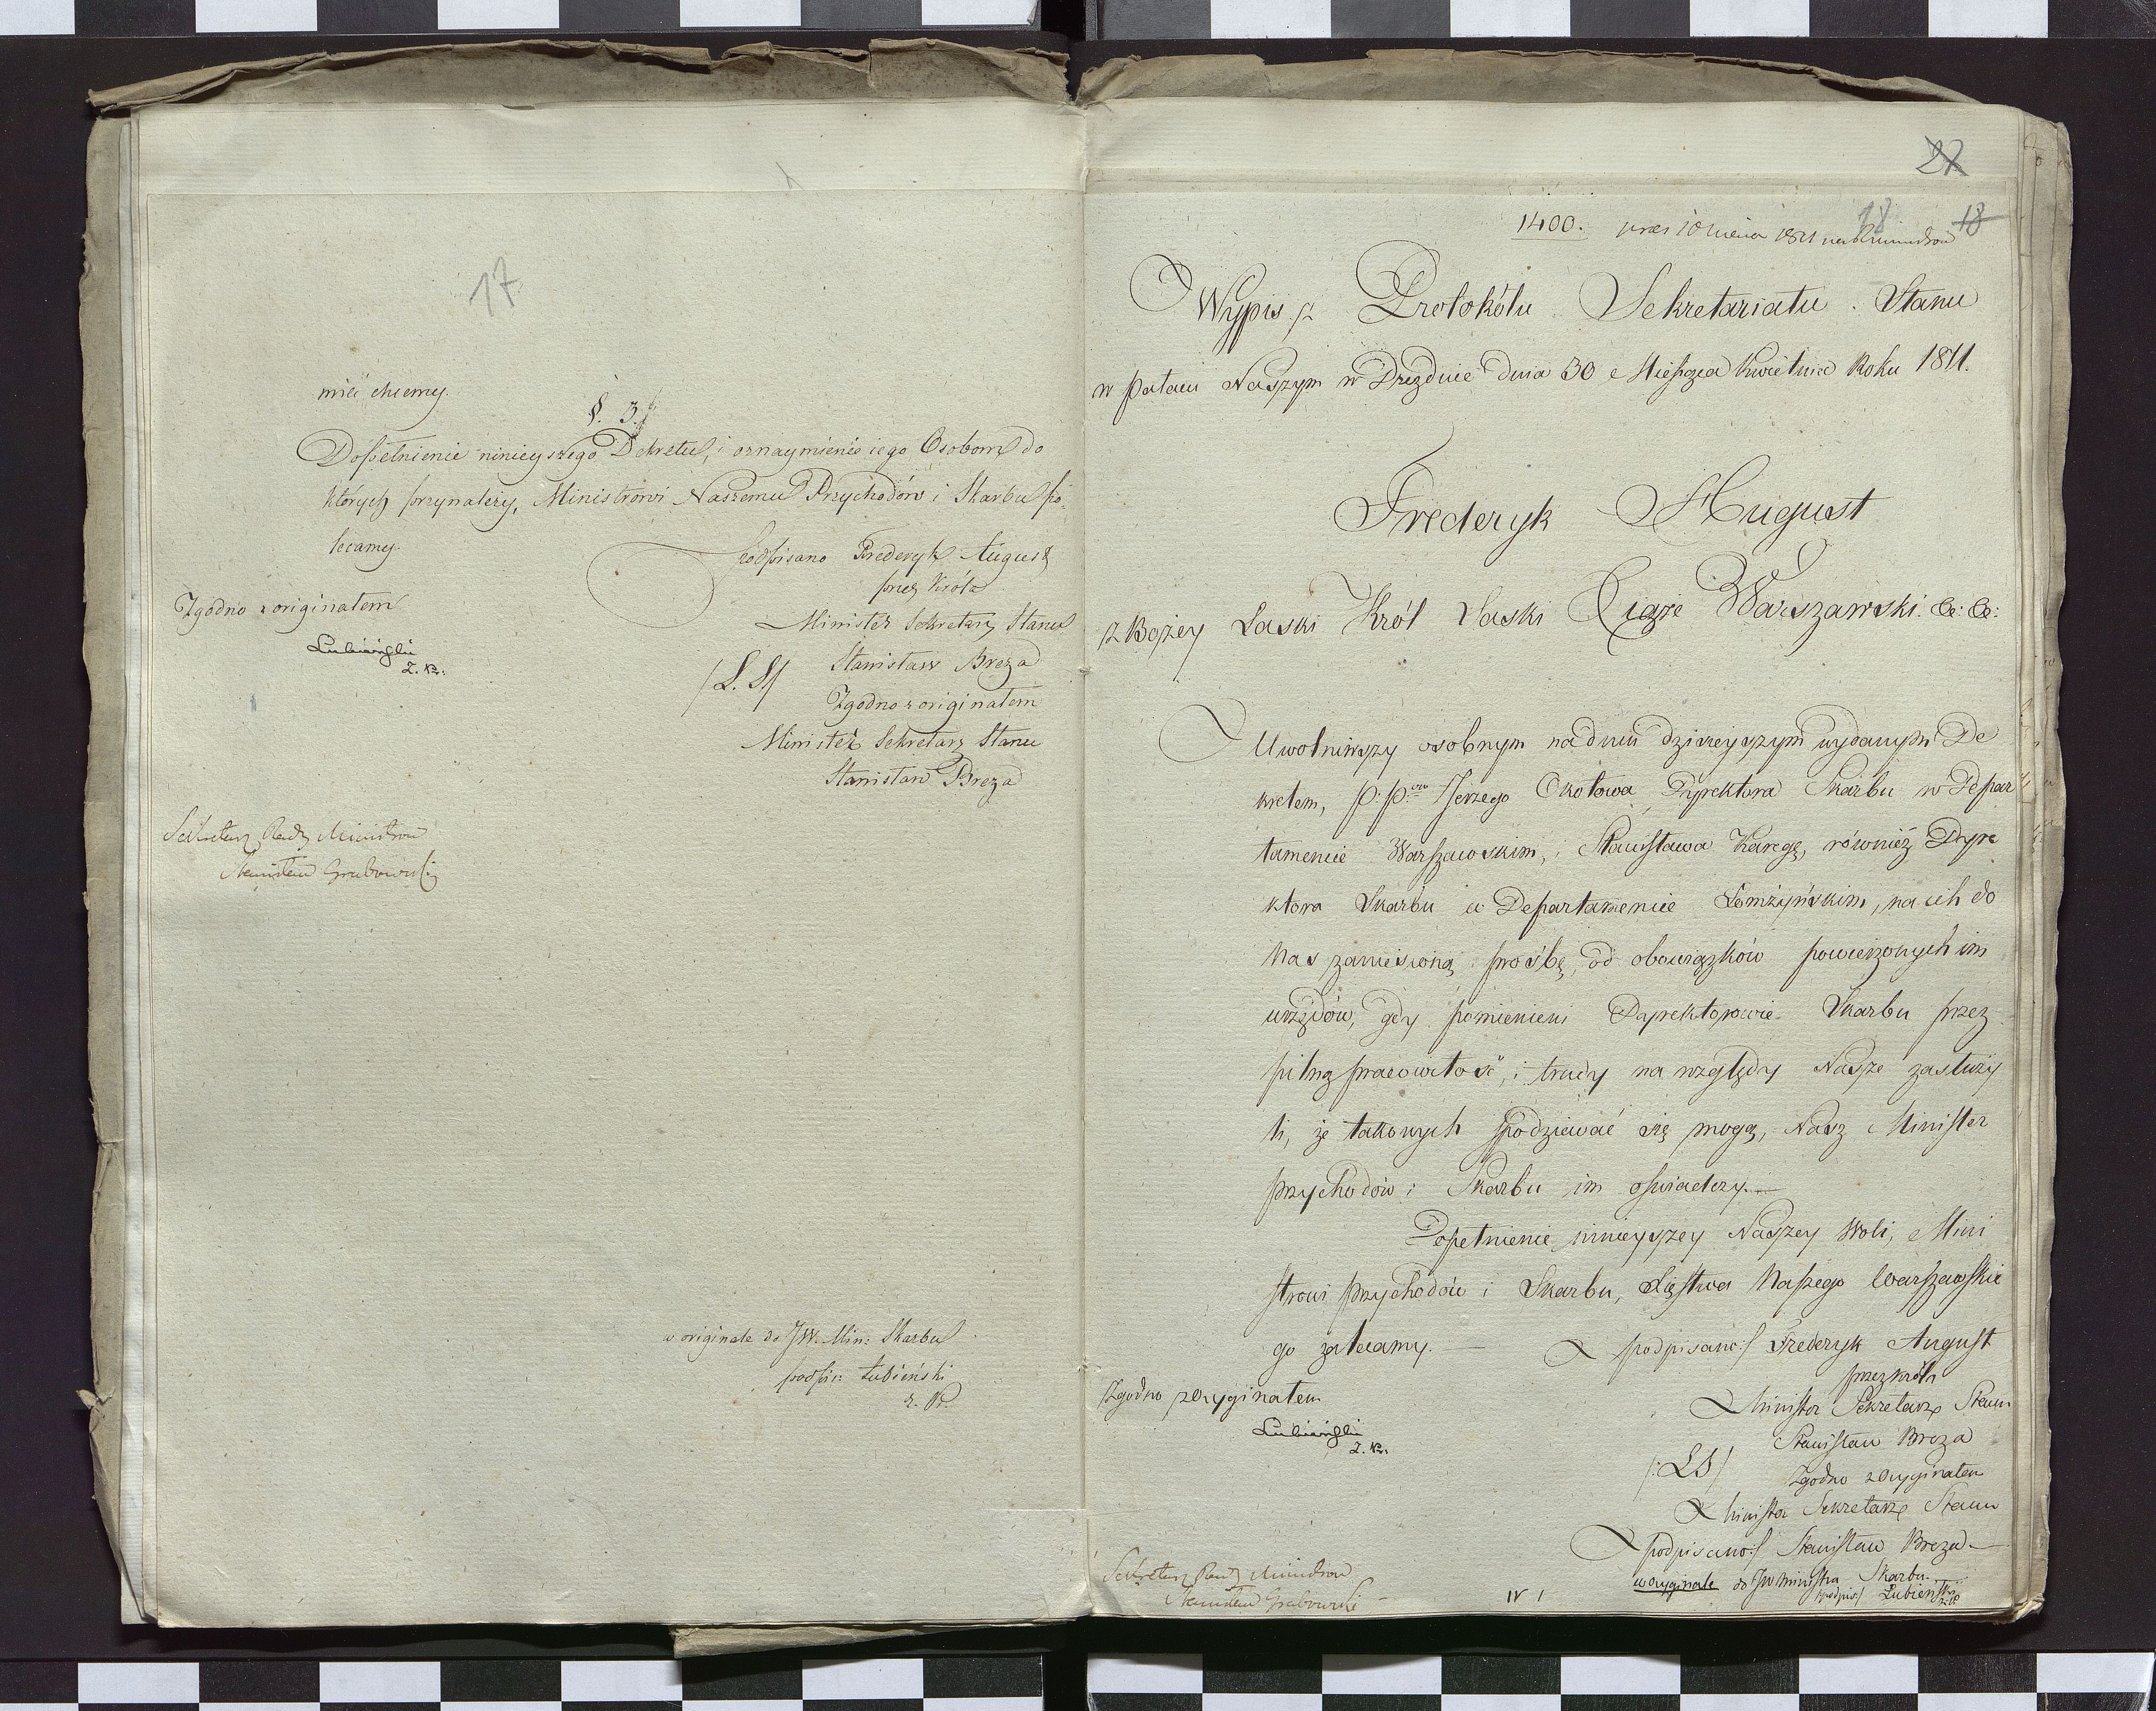 17
mieć chcemy.
§. 3.
Dopełnienie ninieyszego Dekretu, i oznaymienie iego Osobom do
których przynależy, Ministrowi Naszemu Przychodów i Skarbu po-
lecamy.
podpisano Frederyk August
przez Króla
Minister Sekretarz Stanu
/L. S/ Stanisław Breza
Zgodno z originałem
Minister Sekretarz Stanu
Stanisław Breza
Zgodno z originałem
Lubieński
Sekretarz Rady Ministrów
Stanisław Grabowski
w originale do JW. Min: Skarbu
podpis: Łubieński
27
18 18
1400. 1811
Wypis z Protokółu Sekretariatu Stanu
w pałacu Naszym w Dreźdnie dnia 30 Miesiąca Kwietnia Roku 1811.
Frederyk August
z Bożey Łaski Król Saski Xiąże Warszawski &: &:
Uwolniwszy osobnym na dniu dzisieyszym wydanym De
kretem, Jerzego Okołowa Dyrektora Skarbu w Depar
tamencie Warszawskim, i Stanisława Karęgę, również Dyre
ktora Skarbu w Departamencie Łomżyńskim, na ich do
Nas zaniesioną prośbę, od obowiązków powierzonych im
urzędów, gdy pomienieni Dyrektorowie Skarbu przez
pilną pracowitość, i trudy na względy Nasze zasłuży
li, że takowych spodziewać się mogą, Nasz Minister
przychodów i Skarbu im oświadczy.
Dopełnienie ninieyszey Naszey Woli, Mini
strowi przychodów i Skarbu, Xięstwa Naszego Warszawskie
go zalecamy.
podpisano:/ Frederyk August
przez Króla
Minister Sekretarz Stanu
Stanisław Breza
/:LS/ Zgodno z oryginałem
Minister Sekretarz Stanu
podpisano:/ Stanisław Breza
w oryginale do JW Ministra Skarbu
/podpis:/ Łubieński
Zgodno z oryginałem
Lubieński
Sekretarz Rady Ministrów
Stanisław Grabowski